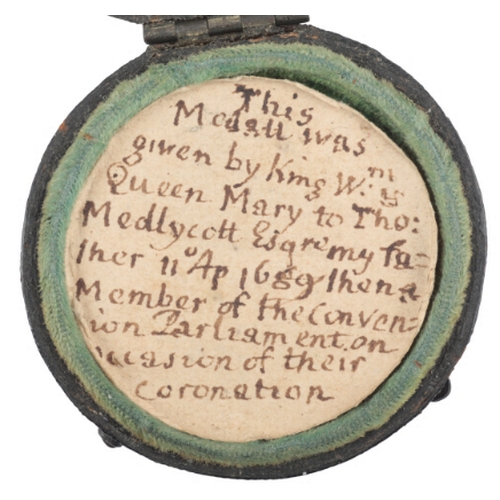 This
Medall was
given by King Wm &
Queen Mary to Tho:
Medlycott Esqre my fa=
ther 11o Ap 1689 then a
Member of the Conven=
ion Parliament on
occasion of their
coronation